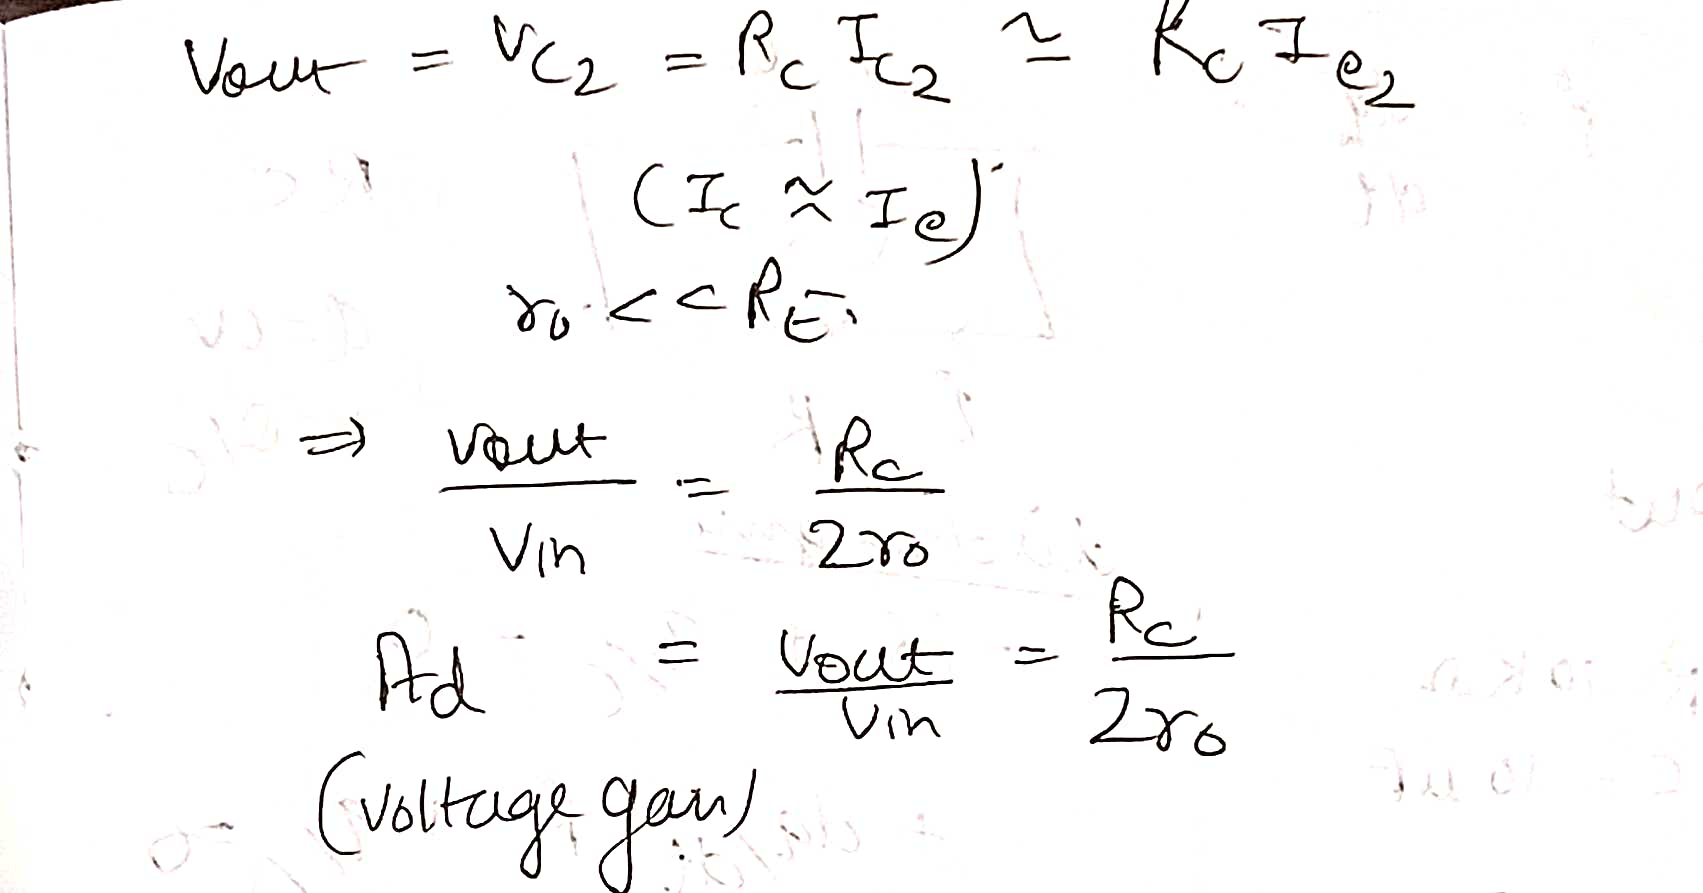 Vout = VC2 = Rc Ic2 ≃ Rc Ie2
(Ic ≈ Ie)
ro << RE
⇒ Vout / Vin = Rc / 2ro
Ad = Vout / Vin = Rc / 2ro
(voltage gain)